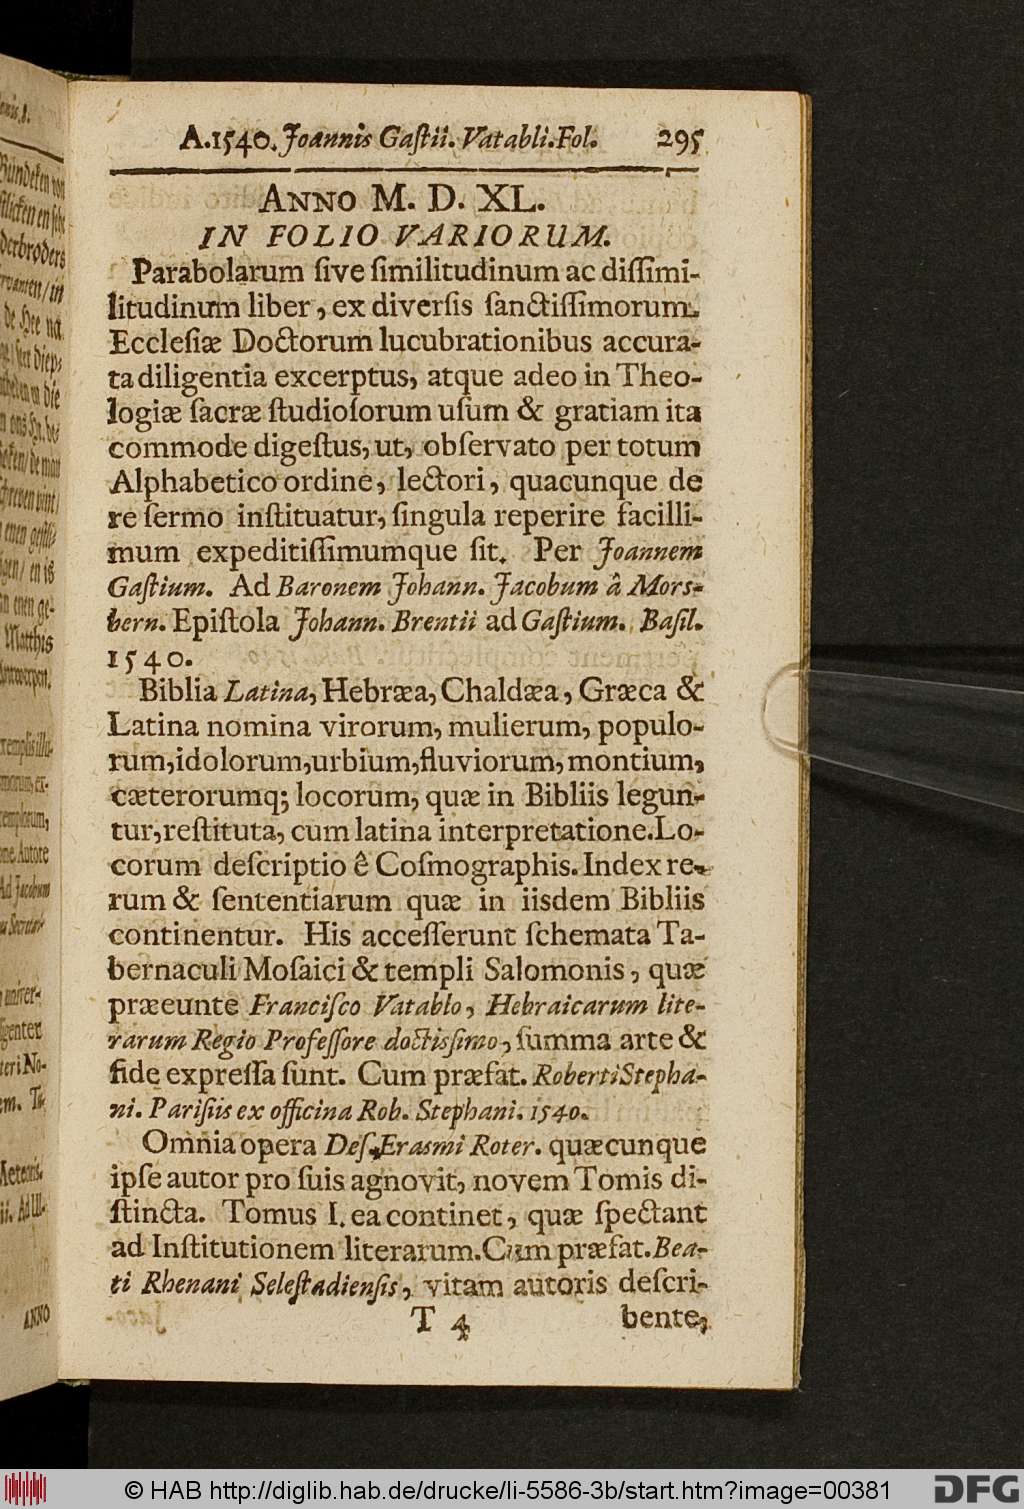 A.1540. Joannis Gaſtii. Vatabli. Fol. 295
ANNO M. D. XL.
IN FOLIO VARIORUM.
Parabolarum ſive ſimilitudinum ac diſſimi-
litudinum liber, ex diverſis ſanctiſſimorum
Eccleſiæ Doctorum lucubrationibus accura-
ta diligentia excerptus, atque adeo in Theo-
logiæ ſacræ ſtudioſorum uſum & gratiam ita
commode digeſtus, ut, obſervato per totum
Alphabetico ordine, lectori, quacunque de
re ſermo inſtituatur, ſingula reperire facilli-
mum expeditiſſimumque ſit. Per Joannem
Gaſtium. Ad Baronem Johann. Jacobum â Mors-
bern. Epiſtola Johann. Brentii ad Gaſtium. Baſil.
1540.
Biblia Latina, Hebræa, Chaldæa, Græca &
Latina nomina virorum, mulierum, populo-
rum, idolorum, urbium, fluviorum, montium,
cæterorumq; locorum, quæ in Bibliis legun-
tur, reſtituta, cum latina interpretatione. Lo-
corum deſcriptio ê Coſmographis. Index re-
rum & ſententiarum quæ in iisdem Bibliis
continentur. His acceſſerunt ſchemata Ta-
bernaculi Moſaici & templi Salomonis, quæ
præeunte Franciſco Vatablo, Hebraicarum lite-
rarum Regio Profeſſore doctisſimo, ſumma arte &
fide expreſſa ſunt. Cum præfat. Roberti Stepha-
ni. Pariſiis ex officina Rob. Stephani. 1540.
Omnia opera Deſ. Erasmi Roter. quæcunque
ipſe autor pro ſuis agnovit, novem Tomis di-
ſtincta. Tomus I. ea continet, quæ ſpectant
ad Inſtitutionem literarum. Cum præfat. Bea-
ti Rhenani Seleſtadienſis, vitam autoris deſcri-
T 4 bente,
© HAB http://diglib.hab.de/drucke/li-5586-3b/start.htm?image=00381
DFG